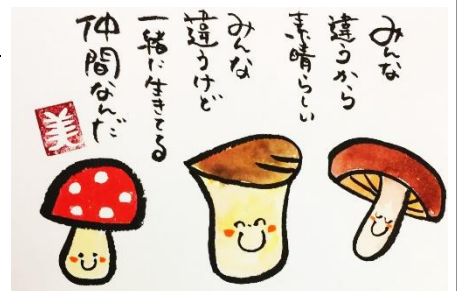 みんな
違うから
素晴らしい
みんな
違うけど
一緒に生きてる
仲間なんだ
美